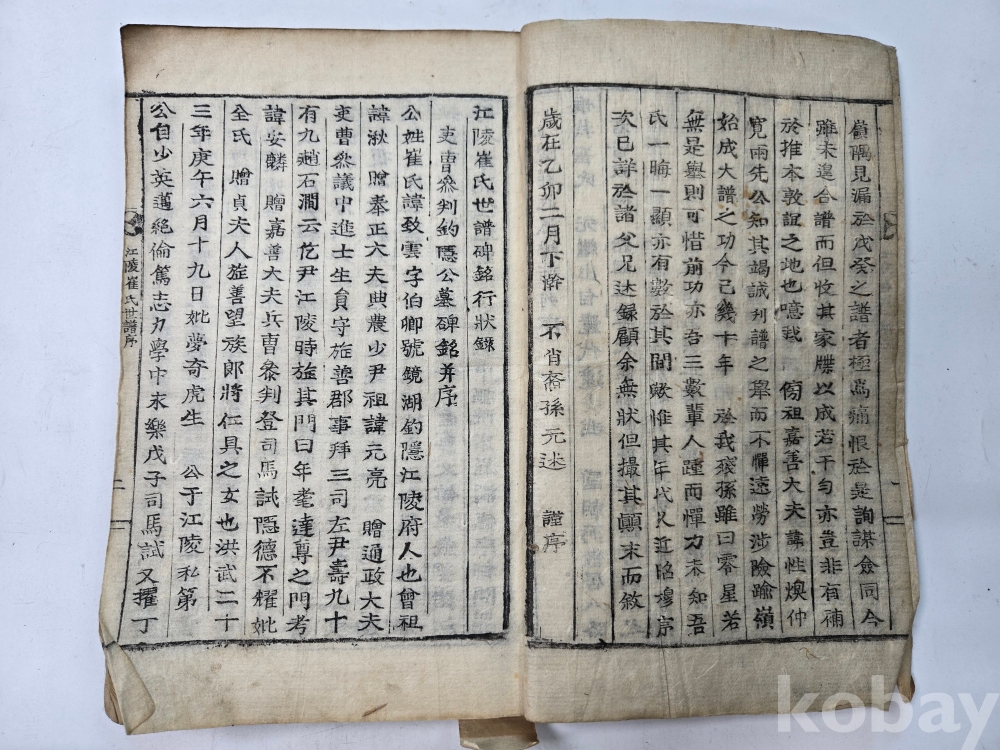 顧隅見漏於戊癸之譜者極爲痛恨於是詢謀僉同今
雖未遑合譜而但收其家牒以成若干勻亦豈非有補
於推本敦誼之地也噫我 傍祖嘉善大夫諱性煥仲
寬兩先公知其竭誠刋譜之擧而不憚遠勞涉險踰嶺
始成大譜之功今已幾十年 於我後孫雖曰零星若
無是擧則可惜前功亦吾三數輩人踵而憚力未知吾
氏一晦一顯亦有數於其間歟惟其年代久近昭穆序
次已詳於諸父兄述錄顧余無狀但撮其顚末而敘
歲在乙卯二月下澣 不肖裔孫元述 謹序
江陵崔氏世譜碑銘行狀錄
吏曹叅判釣隱公墓碑銘幷序
公姓崔氏諱致雲字伯卿號鏡湖釣隱江陵府人也曾祖
諱湫贈奉正大夫典農少尹祖諱元亮 贈通政大夫
吏曹叅議中進士生員守旌善郡事拜三司左尹壽九十
有九趙石澗云仡尹江陵時旌其門曰年耄達尊之門考
諱安麟贈嘉善大夫兵曹叅判登司馬試隱德不耀妣
全氏 贈貞夫人旌善望族郞將仁具之女也洪武二十
三年庚午六月十九日妣夢奇虎生 公于江陵私第
公自少英邁絕倫篤志力學中末樂戊子司馬試又擢丁
江陵崔氏世譜序
二
kobay